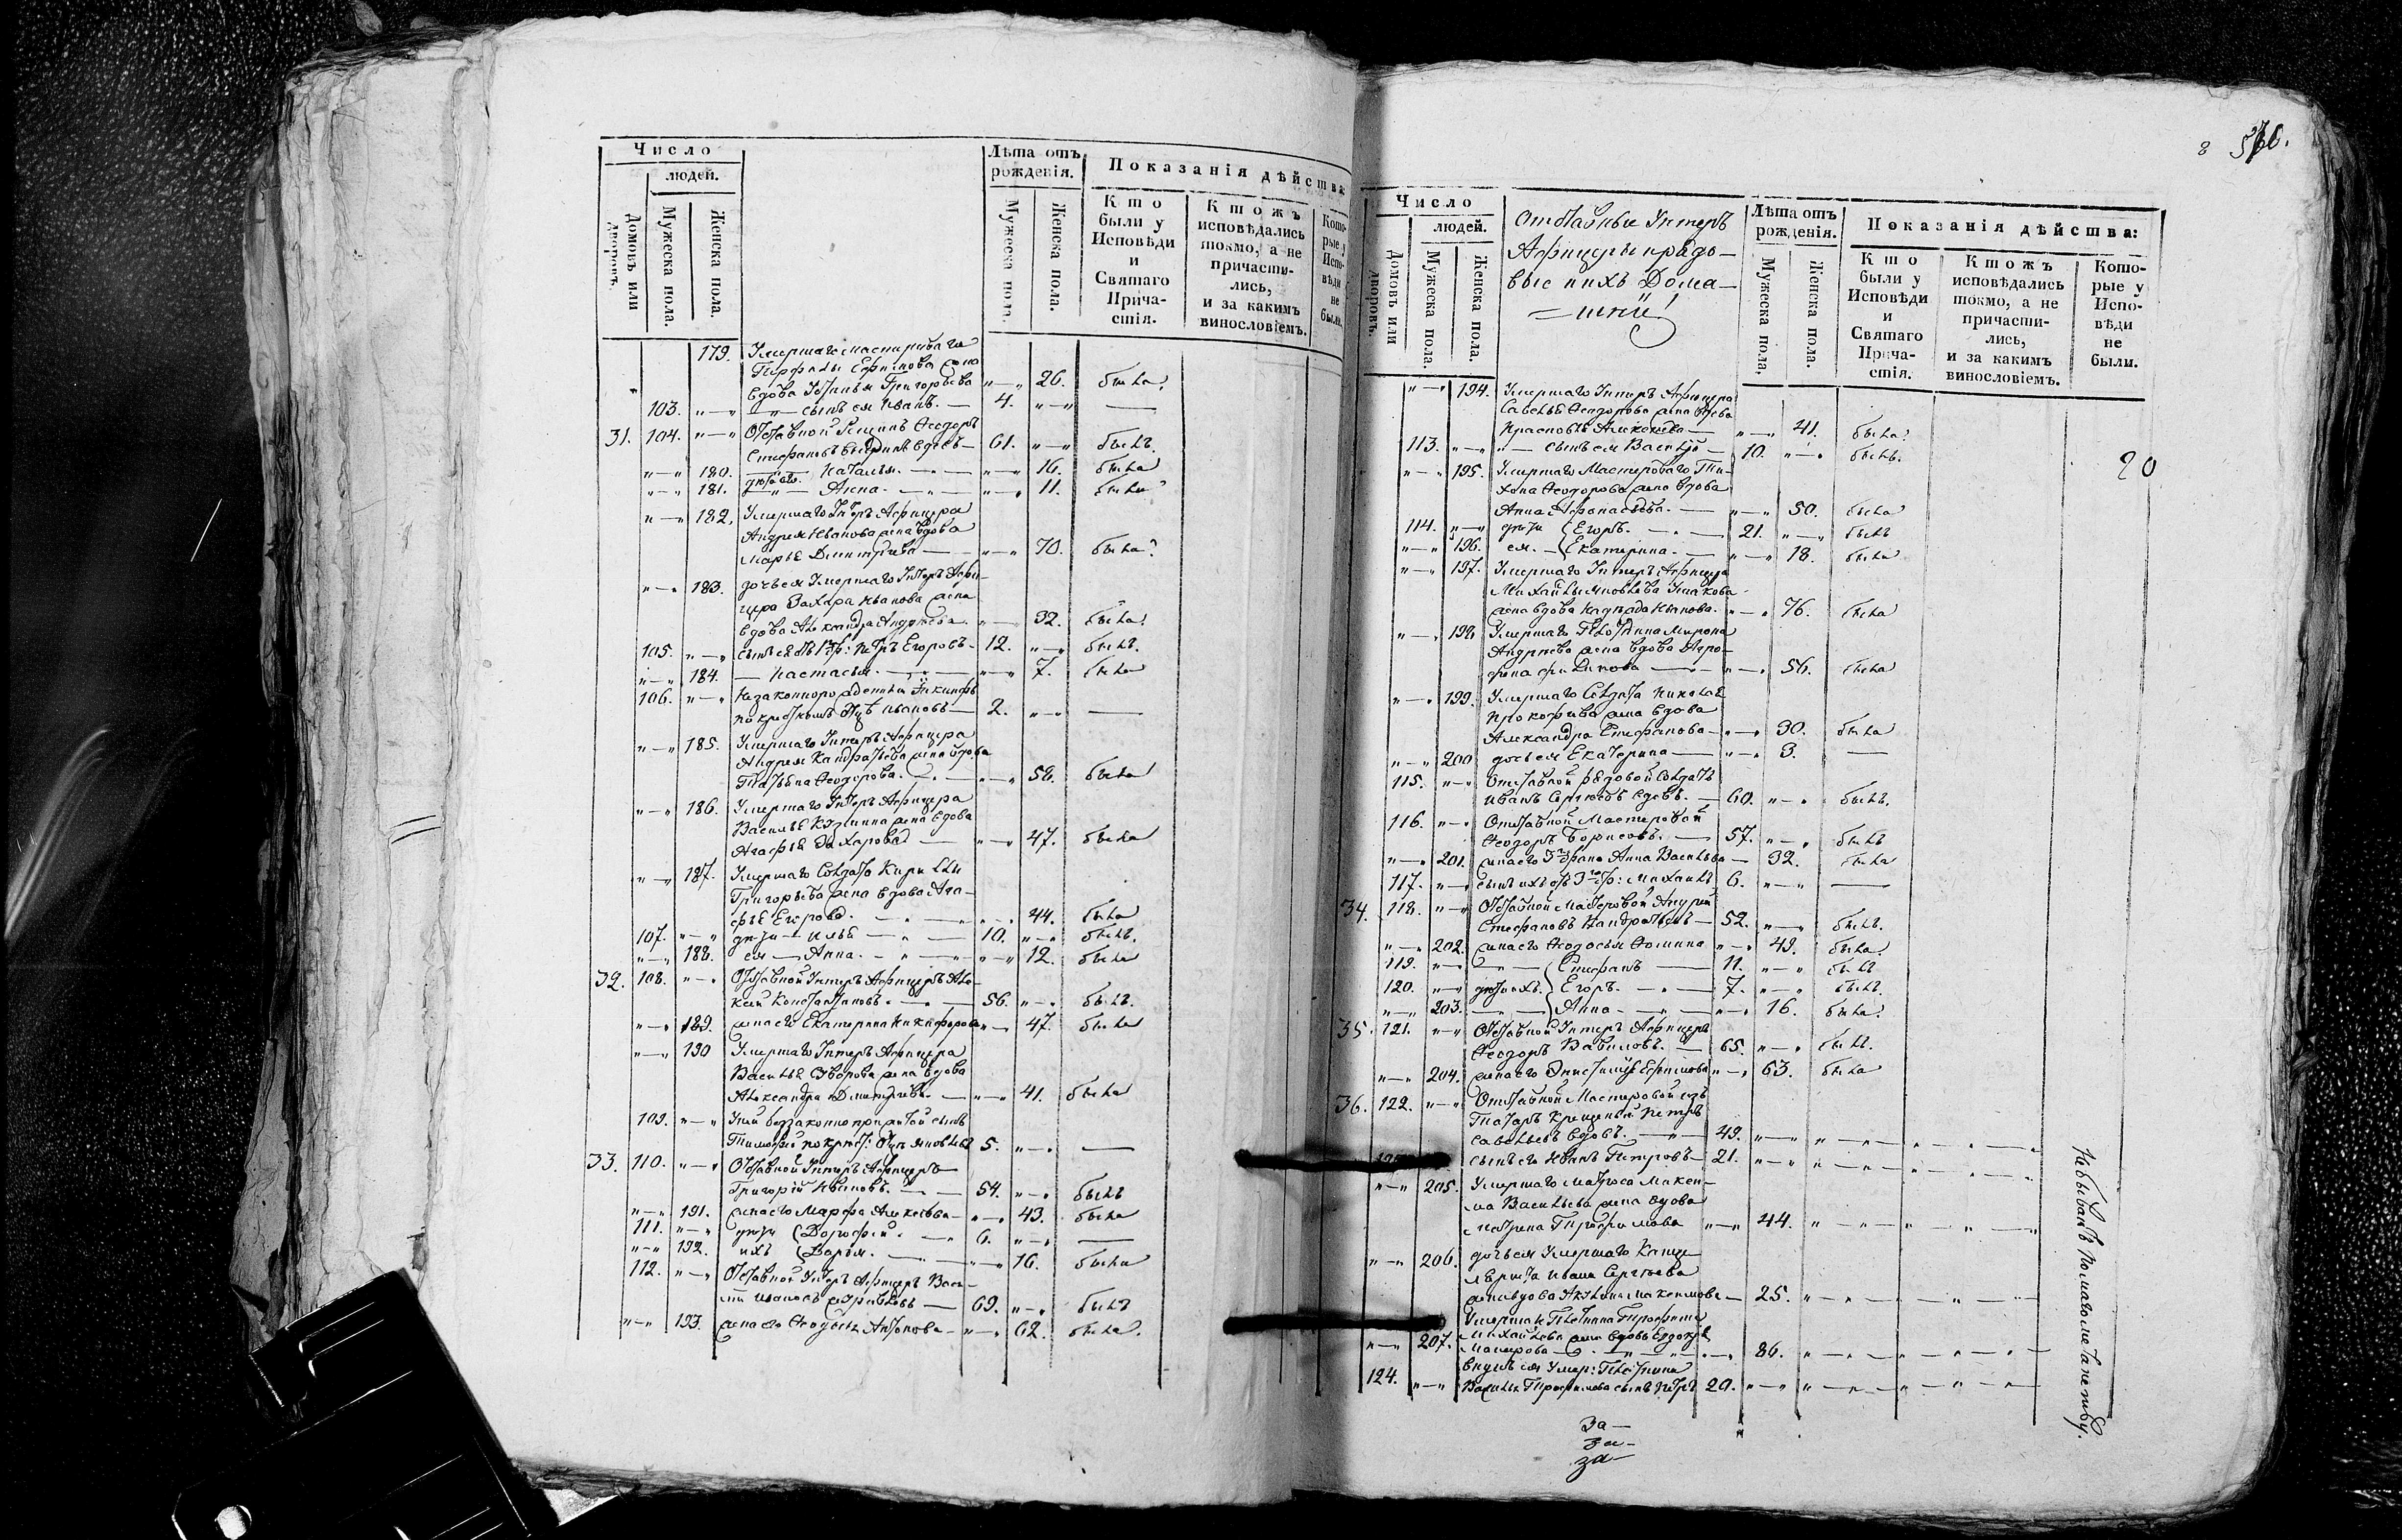 Число
людей.
Домовъ или дворовъ.
Мужеска пола.
Женска пола.
Лѣта отъ рожденія.
Мужеска пола.
Женска пола.
Показанія дѣйства:
Кто были у Исповѣди и Святаго Прича-стія.
Ктожъ исповѣдались токмо, а не причасти-лись, и за какимъ винословіемъ.
Кото-рые у Испо-вѣди не были.
179. Умершаго мастероваго
Ефимова жена
вдова Григорьева 26. была
103. сынъ ея Иванъ. 4.
31. 104. Отставной Ѳеодоръ
Стефановъ вдовъ 61. былъ.
180. Наталья. 16. была
181. дѣти его Анна. 11. была
182. Умершаго Унтеръ Афицера
Андрея Иванова жена вдова
Марья Дмитріева 70. была
183. дочь ея умершаго Унтеръ Афи-
цера Захара Иванова жена
вдова Александра Андреева. 32. была
105. Петръ Егоровъ 12. былъ.
184. Настасья. 7. была
106. Незаконнорожденный
Ивановъ 2.
185. Умершаго Унтеръ Афицера
Андрея Кандратьева жена вдова
Татьяна Ѳеодорова. 58. была
186. Умершаго Унтеръ Афицера
Василья Кузмина жена вдова
Агафья Захарова 47. была
187. Умершаго Солдата Кирилы
Григорьева жена вдова Ага-
фья Егорова. 44. была
107. дѣти Илья 10. былъ.
188. ея Анна. 12. была
32. 108. Отставной Унтеръ Афицеръ Але-
ксей Константиновъ. 56. былъ.
189. жена его Екатерина Никифорова 47. была
190 Умершаго Унтеръ Афицера
Василья жена вдова
Александра Дмитріева. 41. была
109. У ней беззаконно прижитой сынъ
Тимофей 5.
33. 110. Отставной Унтеръ Афицеръ
Григорій Ивановъ. 54. былъ
191. жена его Марфа Алексѣева 43. была
111. дѣти Дорофей. 6.
192. ихъ Дарья. 16. была
112. Отставной Унтеръ Афицеръ Васи-
лій Ивановъ 69. былъ
193. жена его Антонова 62. была.
8 376.
Число
людей.
Домовъ или дворовъ.
Мужеска пола.
Женска пола.
Отставные Унтеръ
Афицеры и рядо-
вые и ихъ Дома-
шніи
Лѣта отъ рожденія.
Мужеска пола,
Женска пола.
Показанія дѣйства:
Кто были у Исповѣди и Святаго Прича-стія.
Ктожъ исповѣдались токмо, а не причасти-лись, и за какимъ винословіемъ.
Кото-рые у Испо-вѣди не были.
194. Умершаго Унтеръ Афицера
Савелья Ѳеодорова жена вдова
41. была
113. сынъ ея Василій 10. былъ.
20
195. Умершаго Мастероваго Ти-
хона Ѳеодорова жена вдова
Анна Афанасьева. 50. была
114. дѣти Егоръ. 21. былъ
196. ея. Екатерина. 18. была
197. Умершаго Унтеръ Афицера
Михайлы Ушакова
жена вдова Надежда Иванова. 76. была
198 Умершаго Плотника Мирона
Андреева жена вдова Агро-
фена Филипова 56. была
199. Умершаго Солдата Николая
Прокофьева жена вдова
Александра Стефанова 30. была
200 дочь ея Екатерина 3.
115. Отставной рядовой солдатъ
Иванъ Сергѣевъ вдовъ. 60. былъ.
116. Отставной Мастеровой
Ѳеодоръ Борисовъ. 57. былъ
201. жена его Анна Васильева 32. была
117. Михаилъ 6.
34. 118. Отставной Мастеровой Андрей
Стефановъ Кандратьевъ 52. былъ.
202. жена его Ѳеодосья Ѳомина 49. была.
119. Стефанъ 11. былъ
120. дѣти ихъ. Егоръ. 7. былъ.
203. Анна 16. была.
35. 121. Отставной Унтеръ Афицеръ
Ѳеодоръ Вавиловъ. 65. былъ.
204. жена его Ефимова 63. была
36. 122. Отставной Мастеровой изъ
Татаръ крещеный Петръ
Савельевъ вдовъ. 49.
сынъ его Иванъ Петровъ 21.
205. Умершаго Матроса Макси-
ма Васильева жена вдова
Матрена Трофимова 44.
206. дочь ея умершаго Канце-
ляриста Ивана Сергѣева
жена вдова Акулина Максимова 25.
Умершаго Плотника Трофима
207. Михайлова жена вдова Евдокія
86.
124. внукъ ея умер: Плотника
Василья Трофимова сынъ Петръ 20.
Не бывали по малолѣтству
За-
за-
за-